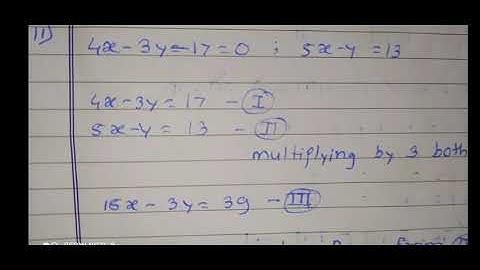 11)
4x - 3y - 17 = 0 ; 5x - y = 13
4x - 3y = 17 - I
5x - y = 13 - II
multiplying by 3 both
15x - 3y = 39 - III